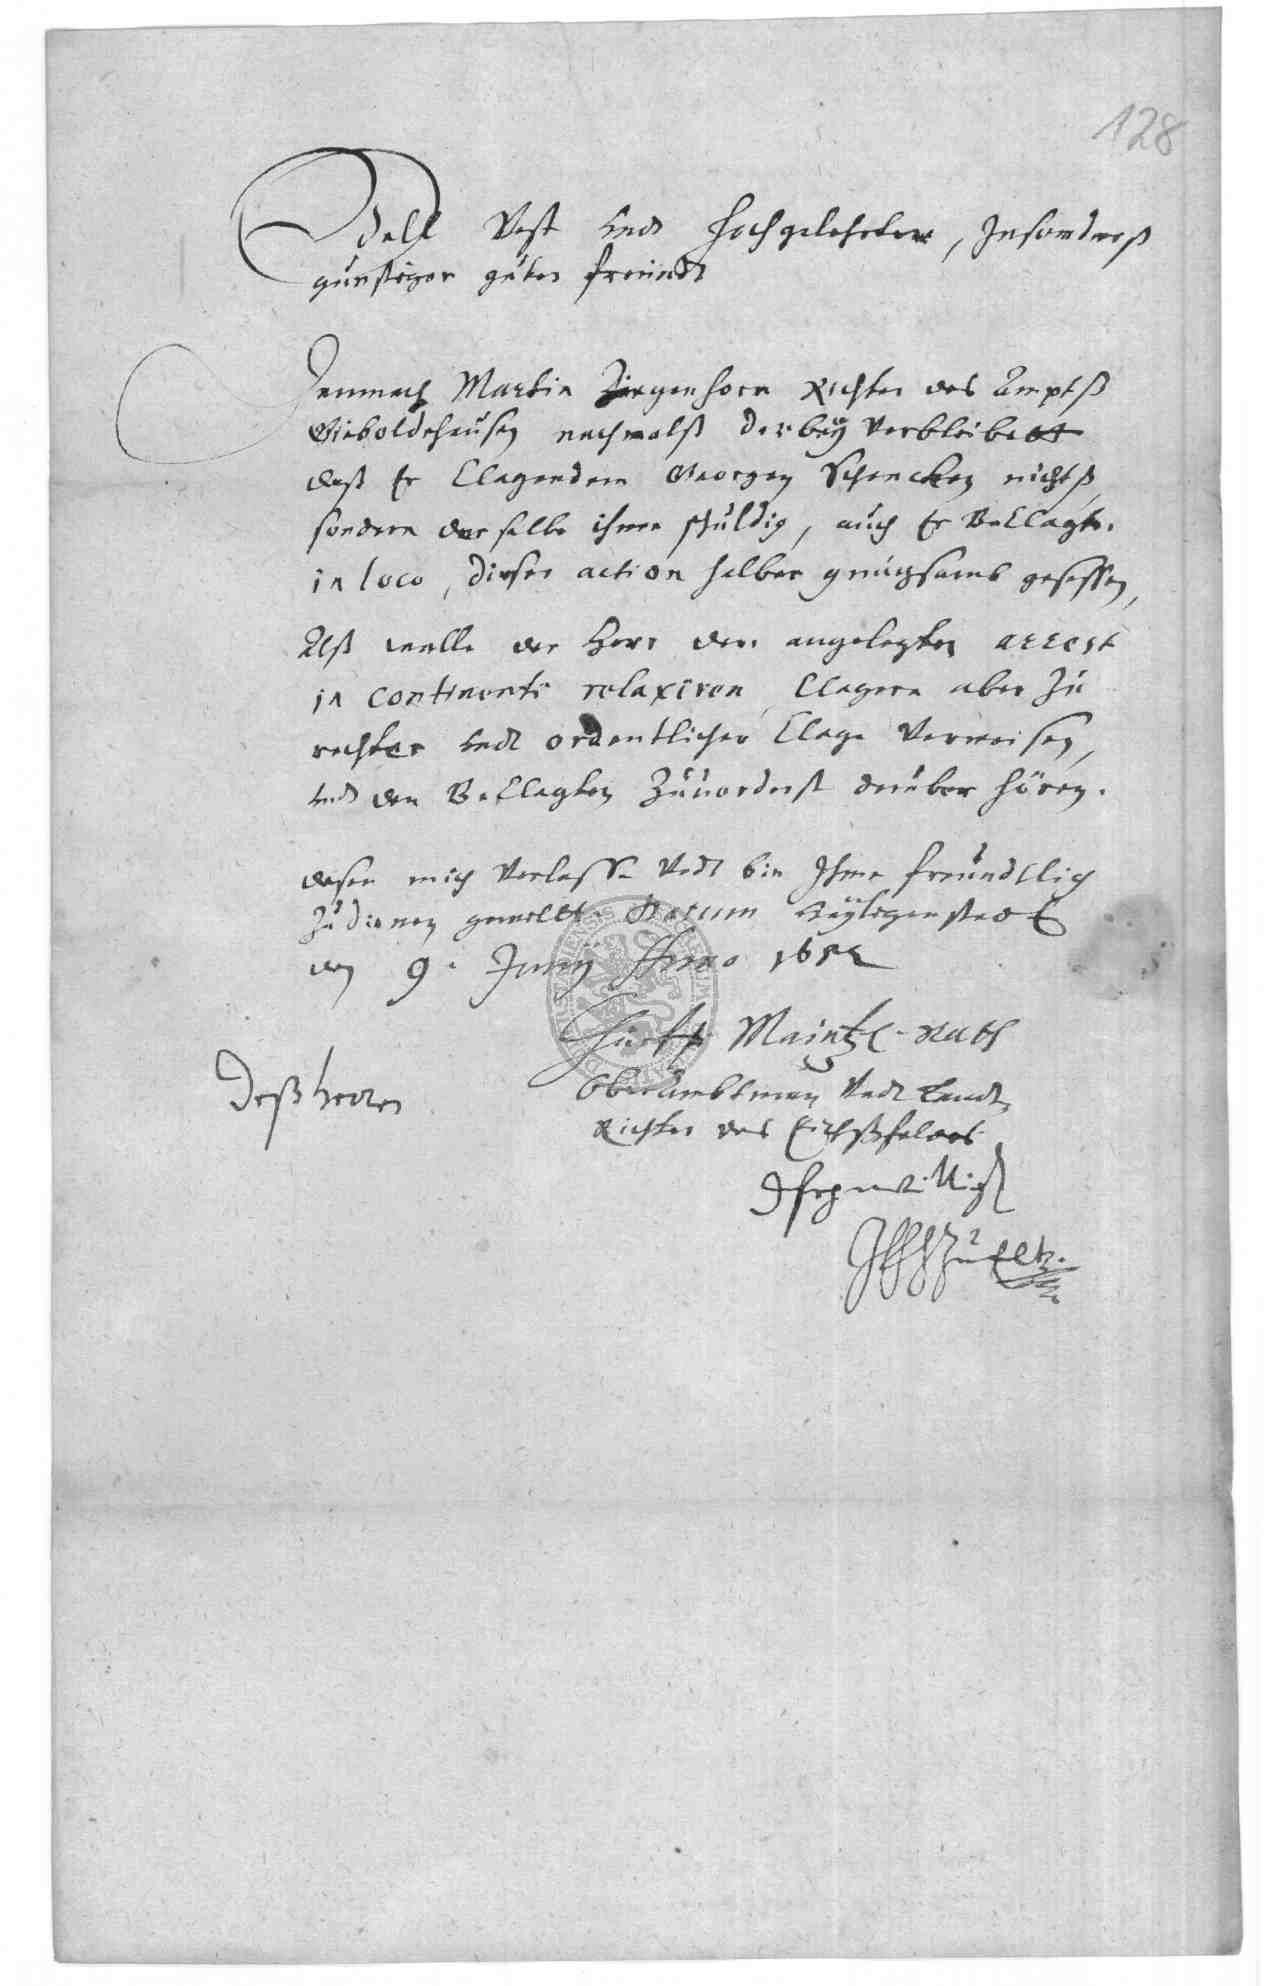 128
Edell Vest undt Hochgelehrter, Insonders
günstiger guter freündt
Demnach Martin Ziegenhorn Richter des Ampts
Gieboldehausen nachmalß darbeÿ verbleibet
daß Er Clagendem Georgen Schencken nichtß
sondern derselbe ihme schuldig, auch Er Beclagter
in loco, dieser action halber gnugsamb gesessen,
Alß wolle der Herr den angelegten arrest
in continenti relaxiren, Clagern aber zu
rechter undt ordentlicher Clage Verweisen,
undt den Beclagten Zuuorderst druber hören.
dessen mich Verlasse Undt bin Ihme freundtlich
zu dienen gewillt. Datum Heÿligenstadt
den 9. Junÿ Anno
Churf. Maintz. Rath
Deß herren
Oberambtman Undt Landt
Richter des Eichßfeldes
Zu Eltz